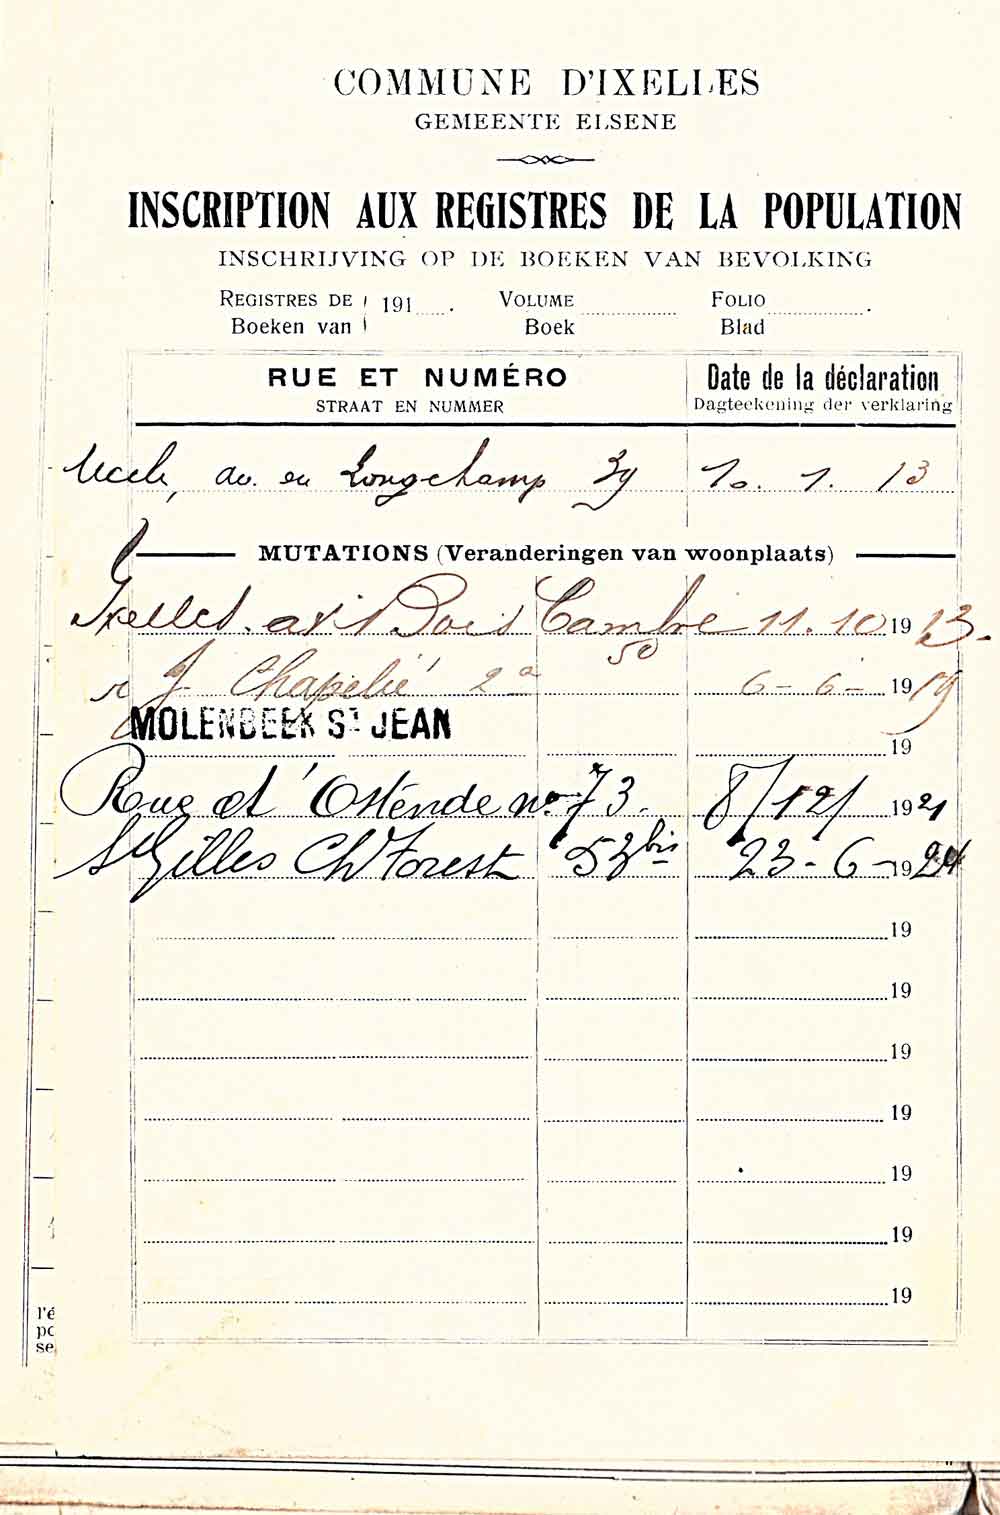 COMMUNE D'IXELLES
GEMEENTE ELSENE
INSCRIPTION AUX REGISTRES DE LA POPULATION
INSCHRIJVING OP DE BOEKEN VAN BEVOLKING
REGISTRES DE 191 . VOLUME FOLIO .
Boeken van Boek Blad
RUE ET NUMÉRO Date de la déclaration
STRAAT EN NUMMER Dagteekening der verklaring
Uccle, av. du Longchamp 39 10. 1. 13
MUTATIONS (Veranderingen van woonplaats)
Ixelles. Bois Cambre 50 11.10 1913.
r J. Chapelié 2a 6-6-1919
MOLENBEEK ST JEAN
19
Rue d'Osténde no 73. 8/12/1921
St Gilles Ch Forest 53bis 23-6-1924
19
19
19
19
19
19
19
l'é
po
se